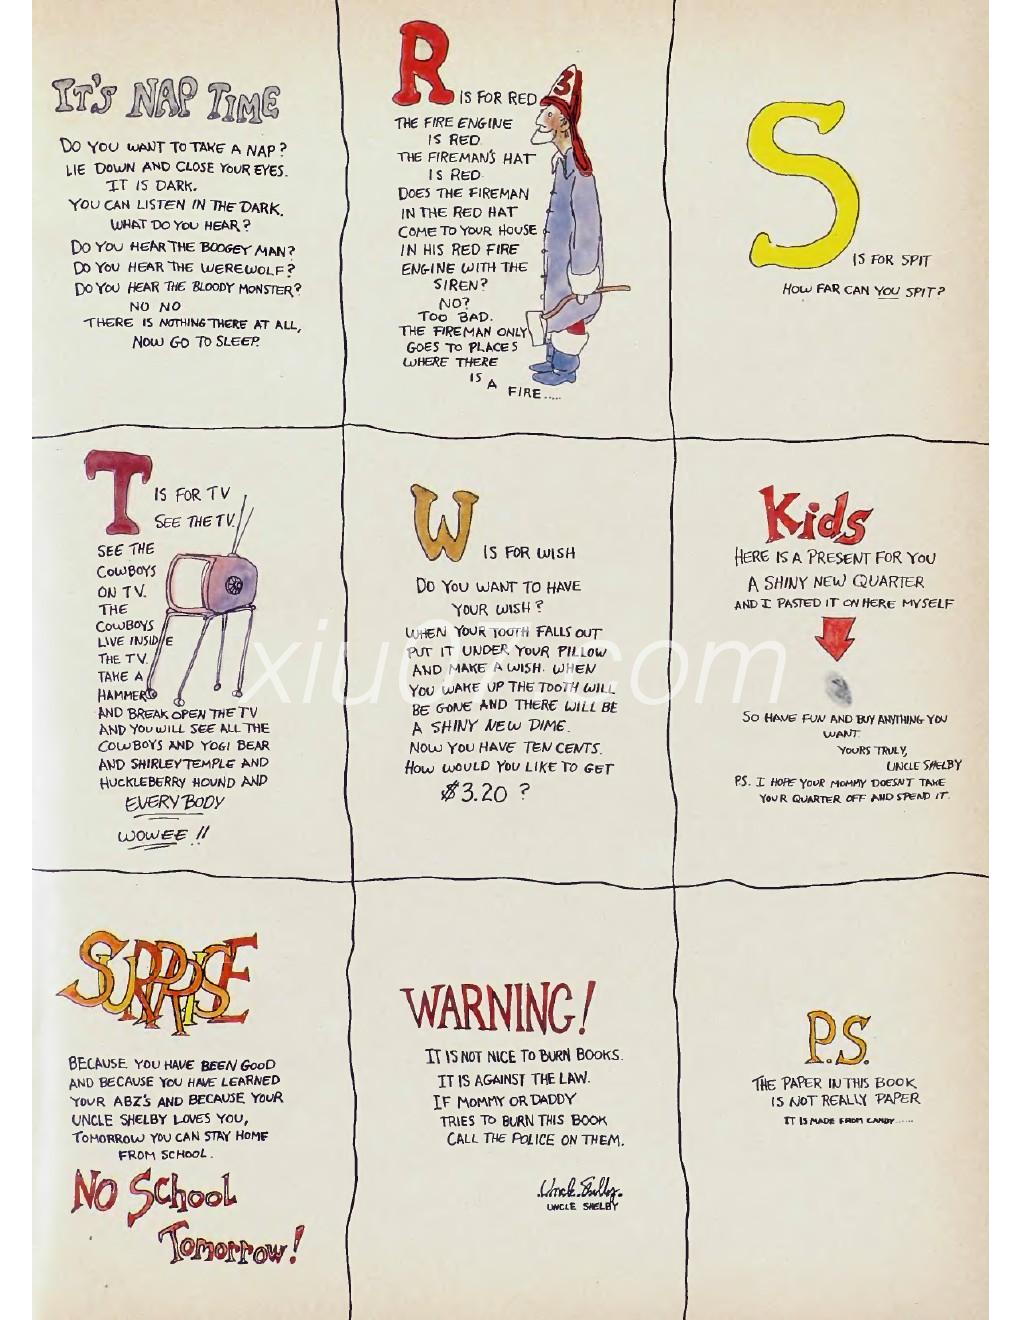 IT'S NAP TIME
DO YOU WANT TO TAKE A NAP?
LIE DOWN AND CLOSE YOUR EYES.
IT IS DARK.
YOU CAN LISTEN IN THE DARK.
WHAT DO YOU HEAR?
DO YOU HEAR THE BOOGEY MAN?
DO YOU HEAR THE WEREWOLF?
DO YOU HEAR THE BLOODY MONSTER?
NO NO
THERE IS NOTHING THERE AT ALL,
NOW GO TO SLEEP.
R IS FOR RED
3
THE FIRE ENGINE
IS RED
THE FIREMAN'S HAT
IS RED
DOES THE FIREMAN
IN THE RED HAT
COME TO YOUR HOUSE
IN HIS RED FIRE
ENGINE WITH THE
SIREN?
NO?
TOO BAD.
THE FIREMAN ONLY
GOES TO PLACES
WHERE THERE
IS A
FIRE.....
S IS FOR SPIT
HOW FAR CAN YOU SPIT?
T IS FOR TV
SEE THE TV.
SEE THE
COWBOYS
ON TV.
THE
COWBOYS
LIVE INSIDE
THE TV.
TAKE A
HAMMER
AND BREAK OPEN THE TV
AND YOU WILL SEE ALL THE
COWBOYS AND YOGI BEAR
AND SHIRLEY TEMPLE AND
HUCKLEBERRY HOUND AND
EVERYBODY
WOWEE !!
W IS FOR WISH
DO YOU WANT TO HAVE
YOUR WISH?
WHEN YOUR TOOTH FALLS OUT
PUT IT UNDER YOUR PILLOW
AND MAKE A WISH. WHEN
YOU WAKE UP THE TOOTH WILL
BE GONE AND THERE WILL BE
A SHINY NEW DIME.
NOW YOU HAVE TEN CENTS.
HOW WOULD YOU LIKE TO GET
$3.20 ?
Kids
HERE IS A PRESENT FOR YOU
A SHINY NEW QUARTER
AND I PASTED IT ON HERE MYSELF
SO HAVE FUN AND BUY ANYTHING YOU
WANT.
YOURS TRULY,
UNCLE SHELBY
P.S. I HOPE YOUR MOMMY DOESN'T TAKE
YOUR QUARTER OFF AND SPEND IT.
xiu07.com
SURPRISE
BECAUSE YOU HAVE BEEN GOOD
AND BECAUSE YOU HAVE LEARNED
YOUR ABZ'S AND BECAUSE YOUR
UNCLE SHELBY LOVES YOU,
TOMORROW YOU CAN STAY HOME
FROM SCHOOL.
NO SCHOOL
TOMORROW!
WARNING!
IT IS NOT NICE TO BURN BOOKS.
IT IS AGAINST THE LAW.
IF MOMMY OR DADDY
TRIES TO BURN THIS BOOK
CALL THE POLICE ON THEM.
Uncle Shelby.
UNCLE SHELBY
P.S.
THE PAPER IN THIS BOOK
IS NOT REALLY PAPER
IT IS MADE FROM CANDY......